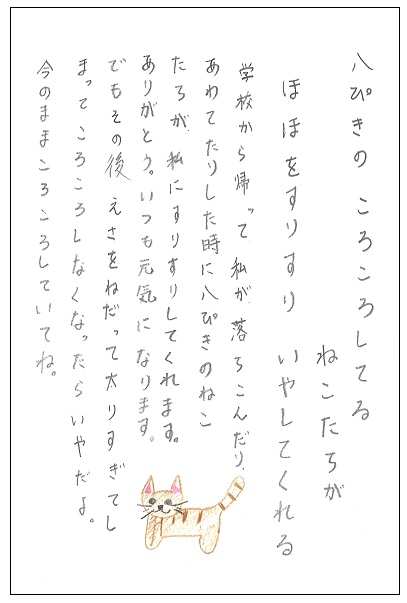 八ぴきの ころころしてる
ねこたちが
ほほをすりすり いやしてくれる
学校から帰って 私が 落ちこんだり、
あわてたりした時に八ぴきのねこ
たちが、私にすりすりしてくれます。
ありがとう。いつも元気になります。
でもその後 えさをねだって太りすぎてし
まって ころころしなくなったら いやだよ。
今のままころころしていてね。